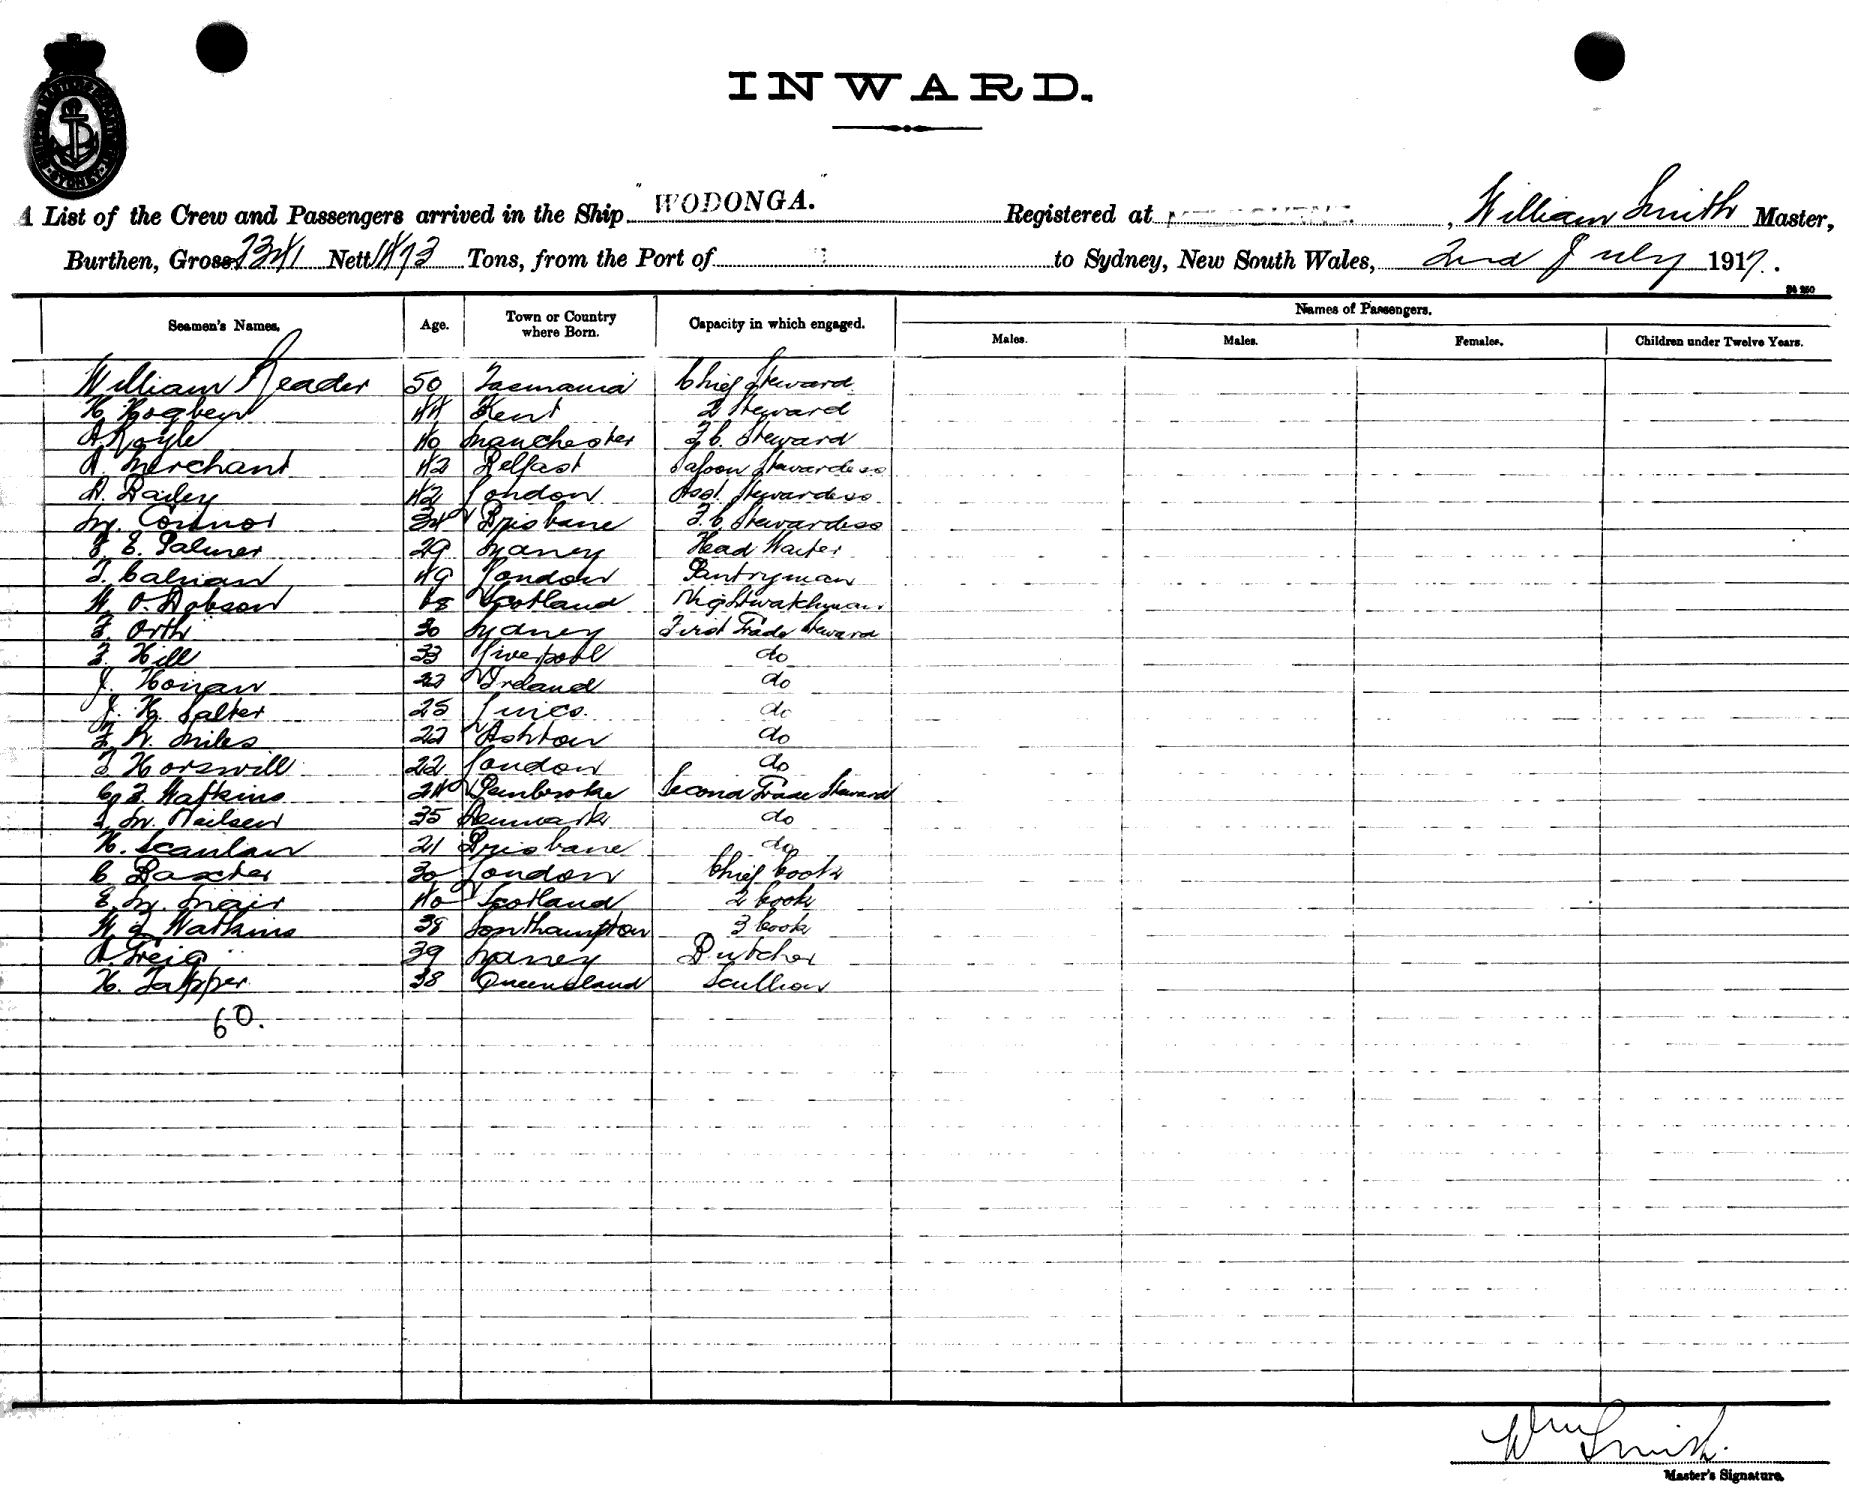 INWARD.
A List of the Crew and Passengers arrived in the Ship "WODONGA." Registered at MELBOURNE, William Smith Master,
Burthen, Gross 2341 Nett 1473 Tons, from the Port of to Sydney, New South Wales, 2nd July 1917.
Seamen's Names. Age. Town or Country where Born. Capacity in which engaged. Names of Passengers.
Males. Males. Females. Children under Twelve Years.
William Reader 50 Tasmania Chief Steward
H. Hogben 44 Kent 2 Steward
A. Royle 40 Manchester F.C. Steward
A. Merchant 42 Belfast Saloon Stewardess
A. Bailey 42 London Asst. Stewardess
M. Connor 34 Brisbane F.C. Stewardess
E. Palmer 29 Sydney Head Waiter
49 London Pantryman
W. O. Dobson 68 Scotland Nightwatchman
F. Orth 30 Sydney First Grade Steward
F. Hill 33 Liverpool do
J. Honan Ireland do
J. H. Salter 25 do
Miles 22 Ashton do
Horswill 22 London do
C. F. Watkins 24 Pembroke Second Grade Steward
M. Neilsen 35 Denmark do
H. Scanlan 21 Brisbane do
C. Baxter 30 London Chief Cook
E. M. Mair 40 Scotland 2 Cook
W. J. Watkins 38 Southampton 3 Cook
A. Greig 39 Sydney Butcher
H. Tapper 38 Queensland Scullion
60.
Wm Smith.
Master's Signature.